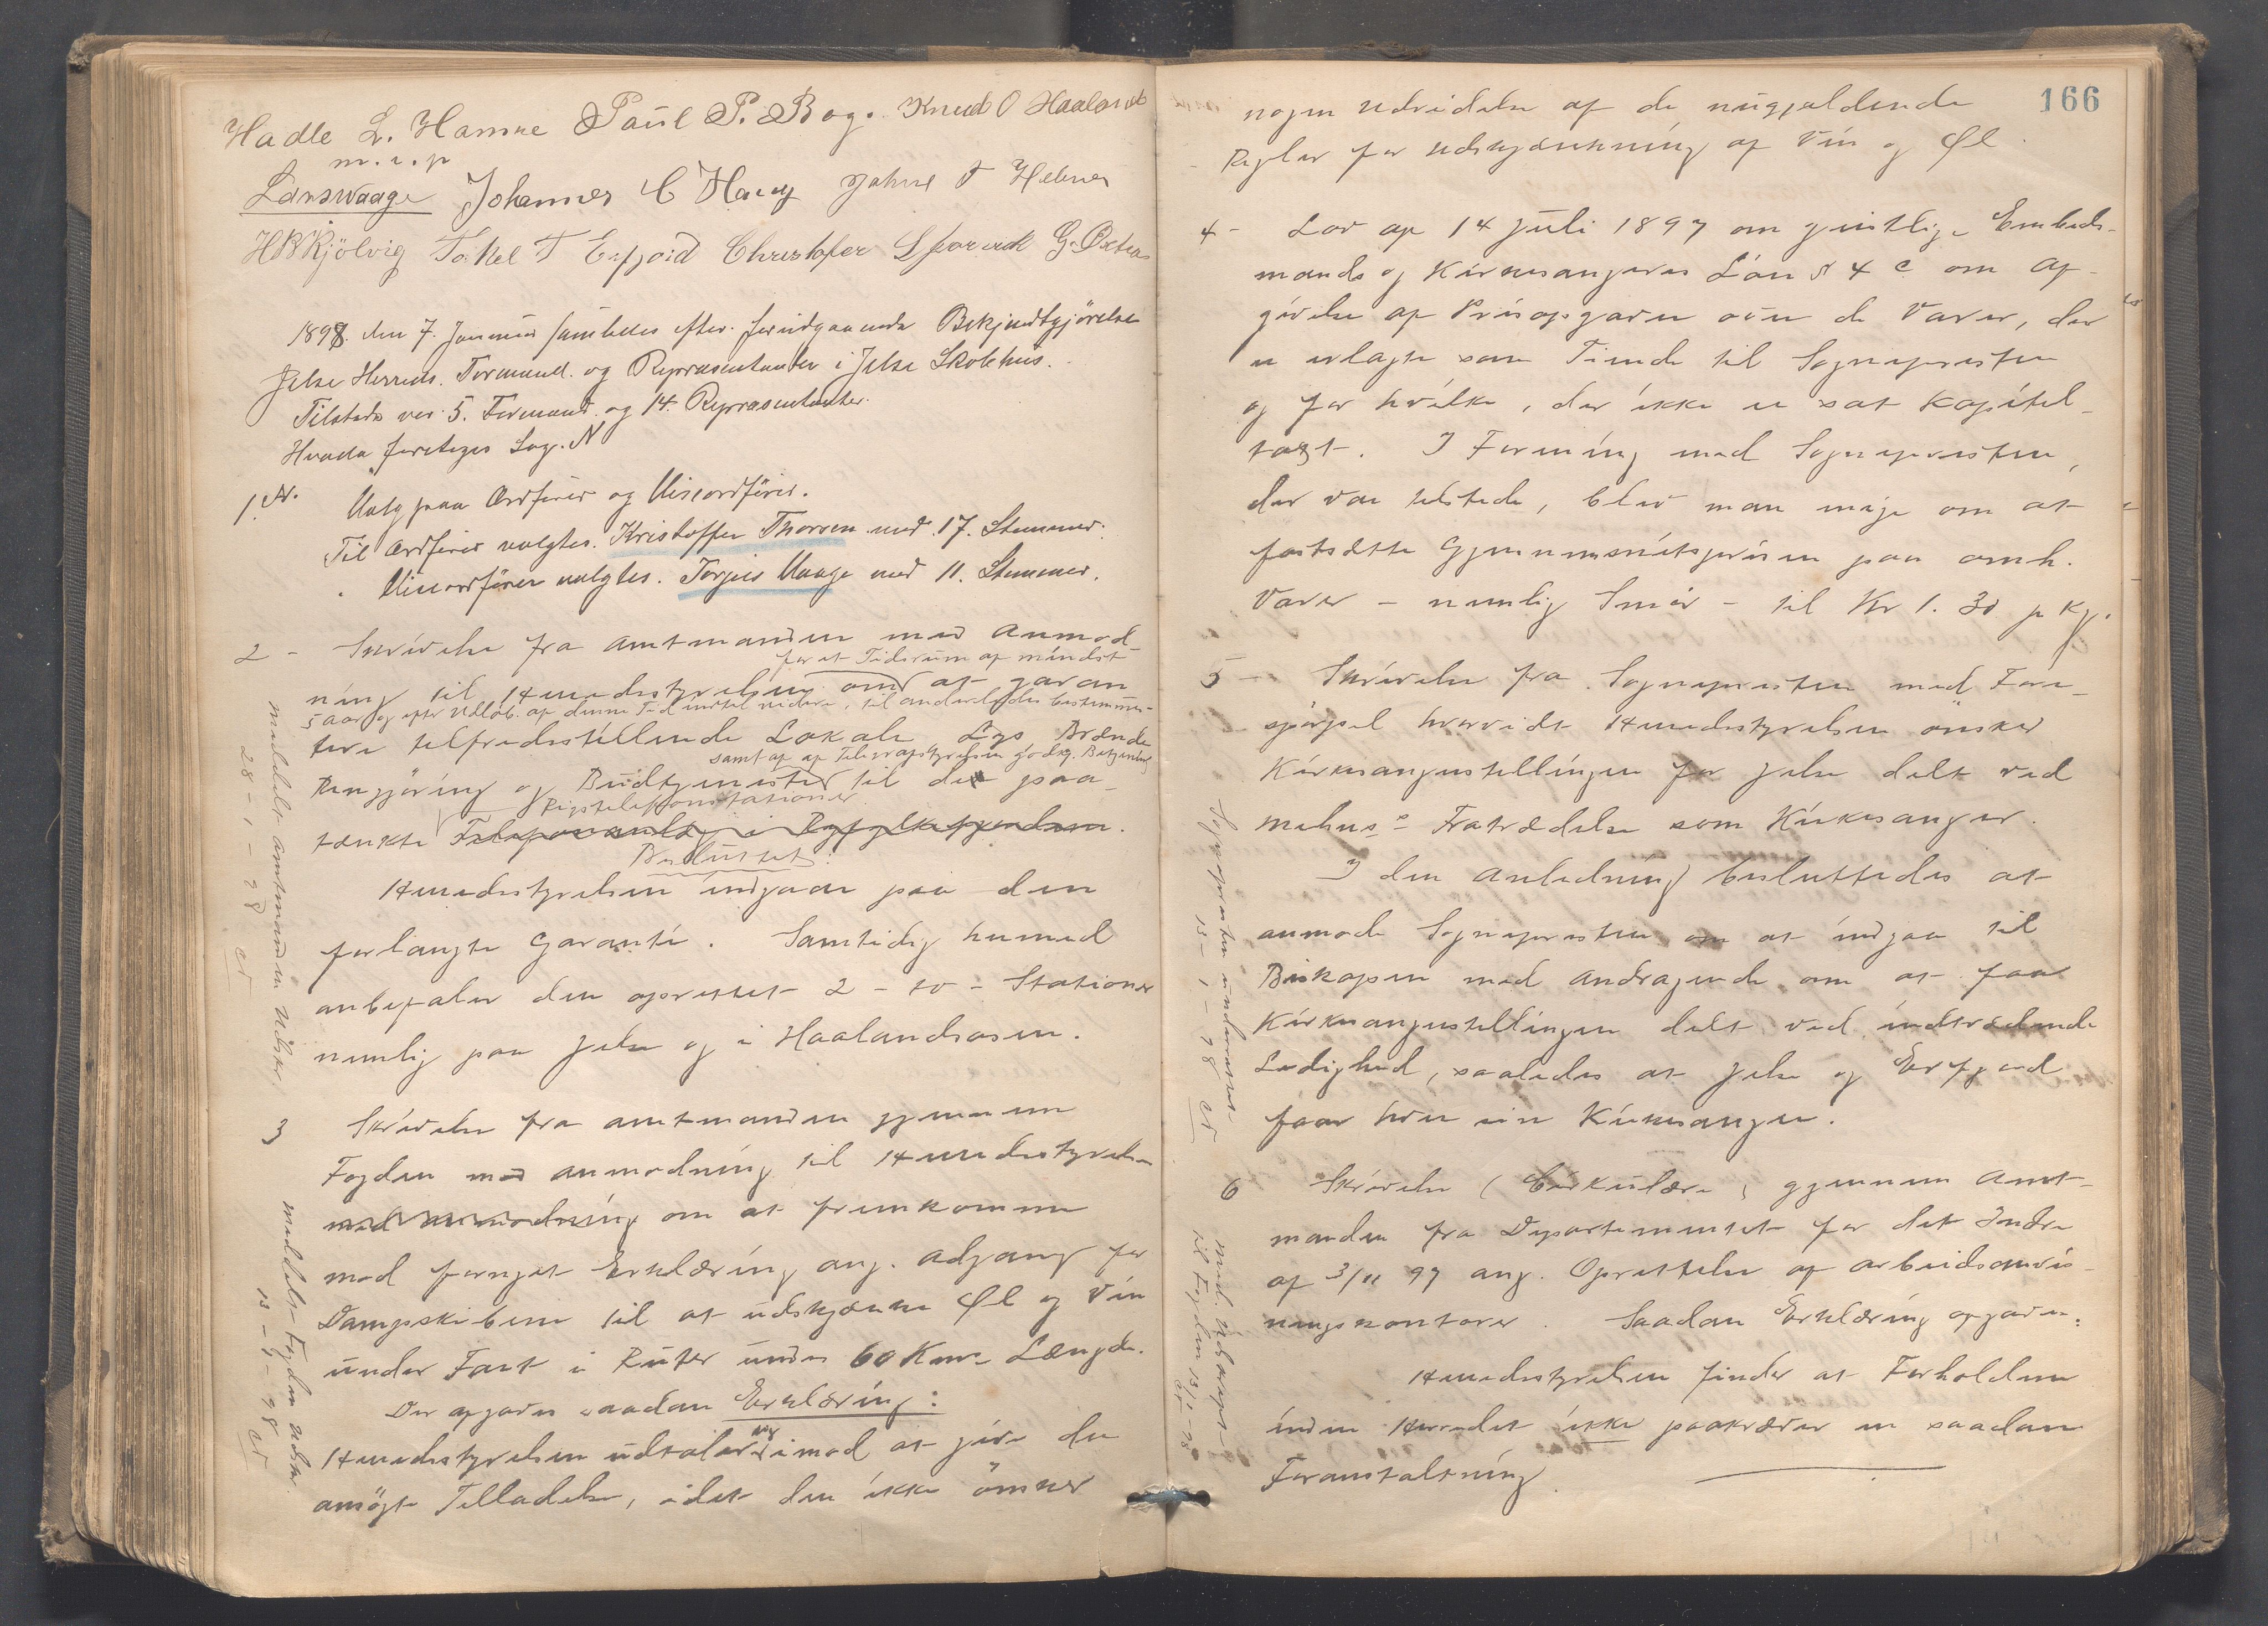 Hadle L. Hamre Paul P. Bog. Knud O Haaland
m. i. p
Larswaage Johannes C Hauy Johne T Hebnes
HBKjölvig Torkel T Erfjord Christofer G. Østen
1898. den 7. Januar samledes efter foreudgaaende Bekjendtgjörelse
Jelse Herreds. Formænd. og Repræsentanter i Jelse Skolehus.
Tilstede var 5. Formænd og 14. Repræsentanter.
Hvada foretoges Sag. N
1. N. Valg paa Ordförer og Viseordförer.
Til Ordförer valgtes. Kristoffer Thorsen med 17. Stemmer.
" Viseordförer valgtes. Torgeis Vaage med 11. Stemmer.
2 - Skrivelse fra Amtmanden med Anmod-
for et Tidsrum af mindst
ning til Herredsstyrelsen om at garan
5 Aar og efter Udløb. af denne Tid indtil videre, til anderledes bestemmes-
tere tilfredsstillende Lokale Lys Brænde
samt af af Telegrafstyrelsen godkj. Betjening
Rengjöring og Budtjenester til de paa-
Rigstelefonstationer.
tænkte Telefonanlæg i Ryfylkefjordene.
Besluttet:
Herredsstyrelsen indgaar paa den
forlangte Garanti. Samtidig hermed
anbefaler den oprettet 2 - to - Stationer
nemlig paa Jelse og i Haalandsosen.
Meddelt Amtmanden Udskr.
28 - 1 - 98
3 Skrivelse fra Amtmanden gjennem
Fogden med Anmodning til Herredsstyrelsen
med Anmodning om at fremkomme
med fornyet Erklæring ang. Adgang for
Dampskibene til at udskjænke Øl og Vin
under Fart i Ruter under 60 Kms Længde.
Der afgaves saadan Erklæring:
Herredsstyrelsen udtaler sig imod at give den
ansögte Tilladelse, idet den ikke önsker
Meddelt Fogden Udskr.
13 - 1 - 98
166
nogen Udvidelse af de nugjældende
Regler for Udskjænkning af Vin og Øl.
4 - Lov af 14 Juli 1897 om geistlige Embeds-
mænds og Kirkesangeres Lön § 4 c om Af-
givelse af Prisopgaver over de Varer, der
er erlagte som Tiende til Sognepresten
og for hvilke, der ikke er sat Kapitel-
taxt. I Forening med Sognepresten,
der var tilstede, blev man enige om at
fastsætte Gjennemsnitsprisen paa omh.
Varer - nemlig Smör - til Kr 1.30 pr Kg.
5 - Skrivelse fra Sognepresten med Fore-
spörgsel hvorvidt Herredsstyrelsen önsker
Kirkesangerstillingen for Jelse delt ved
Mehus's Fratrædelse som Kirkesanger.
I den Anledning besluttedes at
anmode Sognepresten om at indgaa til
Biskopen med Andragende om at faa
Kirkesangerstillingen delt ved indtrædende
Ledighed, saaledes at Jelse og Erfjord
faar hver sin Kirkesanger.
Sognepresten underrettet
13 - 1 - 98
6 Skrivelse (Cirkulære) gjennem Amt-
manden fra Departementet for det Indre
af 3/11 97 ang. Oprettelse af Arbeidsanvis-
ningskontorer. Saadan Erklæring afgaves:
Herredsstyrelsen finder at Forholdene
inden Herredet ikke paakræver en saadan
Foranstaltning.
Med. Udskript
til Fogden 13/1 - 98